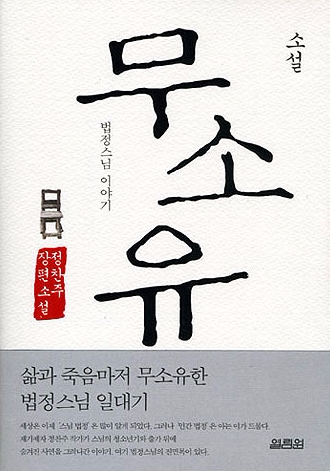 소설
무소유
법정스님 이야기
정찬주
장편소설
삶과 죽음마저 무소유한
법정스님 일대기
세상은 이제 '스님 법정'은 많이 알게 되었다. 그러나 '인간 법정'은 아는 이가 드물다.
재가제자 정찬주 작가가 스님의 청소년기와 출가 뒤에
숨겨진 사연을 그려나간 이야기. 여기 법정스님의 진면목이 있다.
열림원